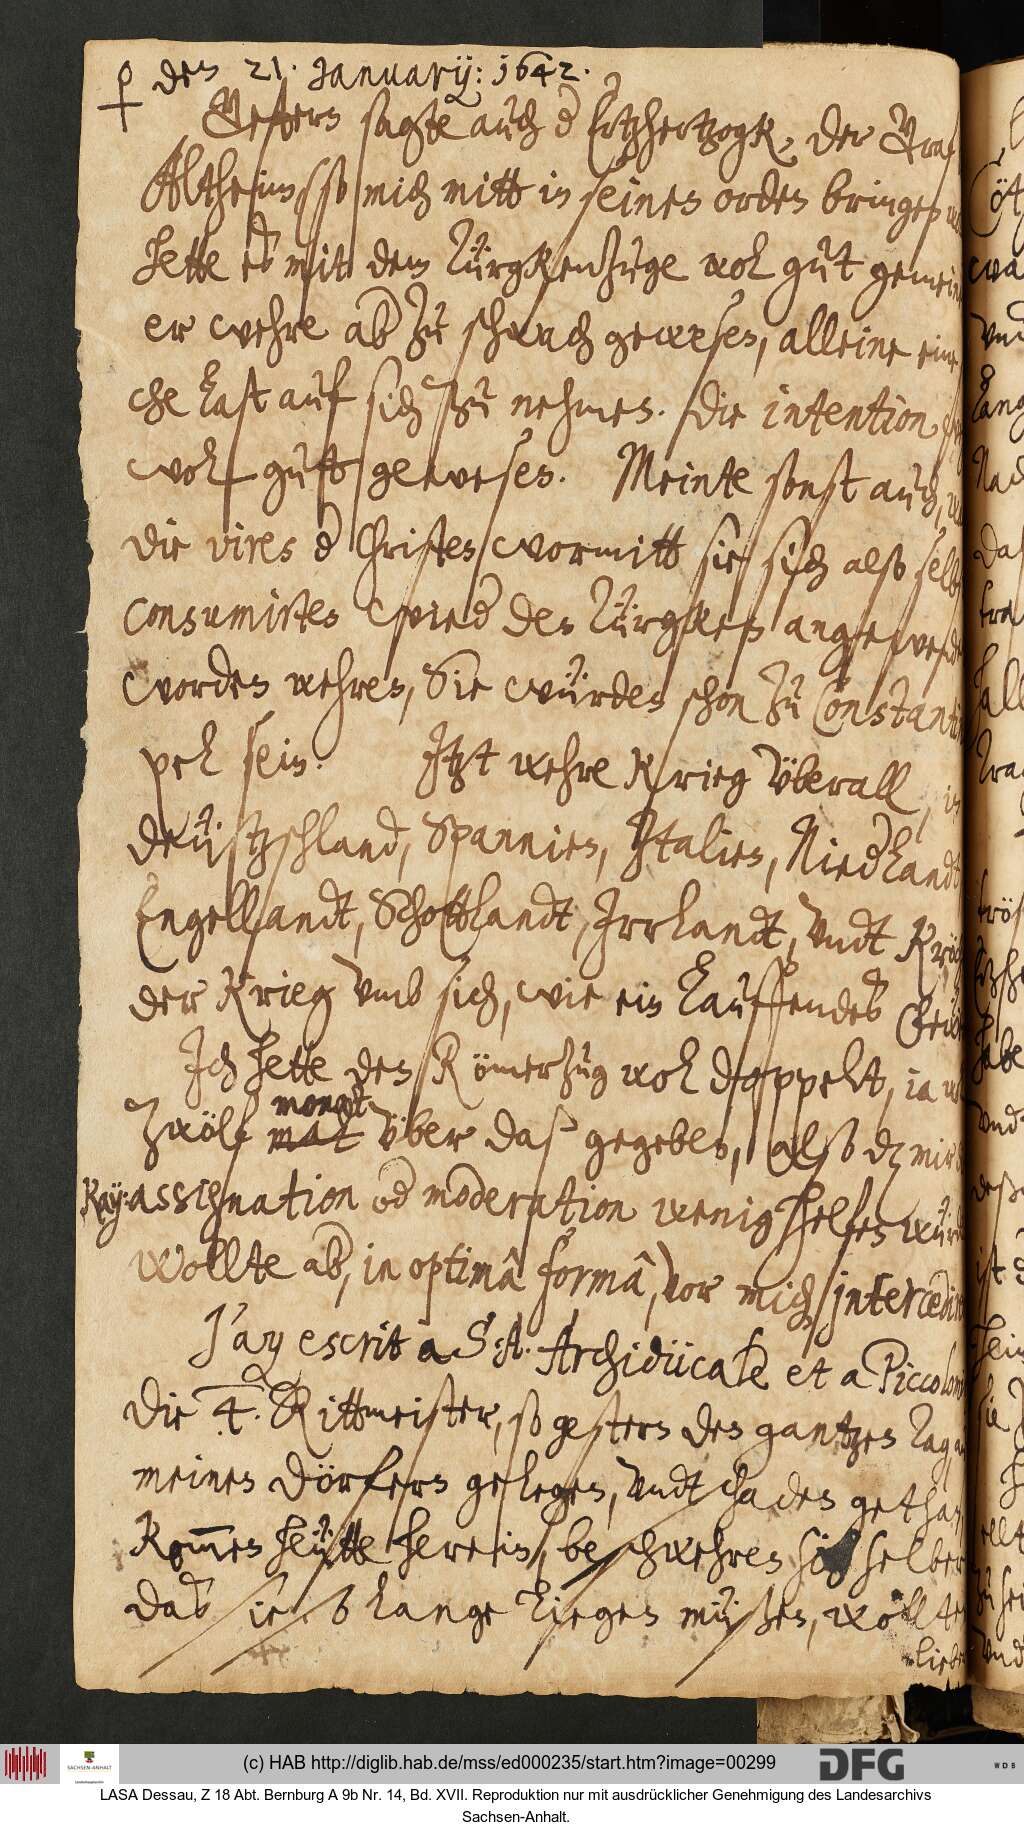 ♀ den 21. January: 1642.
Gestern sagte auch d Ertzhertzogk, der Graf
Altheimb, so mich mitt in seinen orden bringen
hette es mit dem Türgkenzuge wol gut gemein
er wehre ab zu schwach gewesen, alleine eine
che last auf sich zu nehmen. Die intention
wol gut gewesen. Meinte sonst auch,
die vires d Christen wormitt sie sich also selb
consumirten wied den Türgken angewendt
worden wehren, Sie würden schon zu Constanti
pel sein. Itzt wehre Krieg überall, in
deützschland, Spannien, Jtalien, Niedlandt
Engellandt, Schottlandt, Irrlandt, vndt
der Krieg vmb sich, wie ein lauffendes
Ich hette den Römerzug wol doppelt, ia
monat
zwölf mal über das gegeben, also dz mir
Kay: assignation od moderation wenig helfen würd
wollte ab, in optimâ formâ, vor mich intercedir
J'ay escrit a S: A. Archidücale et a Piccolom
Die 4. Rittmeister, so gestern den gantzen Tag
meinen dörfern gelegen, vndt schaden gethan
Kom̅en heütte herein, beschwehren sich selber
das sie so lange liegen müßen, wollten
liebe
(c) HAB http://diglib.hab.de/mss/ed000235/start.htm?image=00299
SACHSEN-ANHALT
DFG
WDB
LASA Dessau, Z 18 Abt. Bernburg A 9b Nr. 14, Bd. XVII. Reproduktion nur mit ausdrücklicher Genehmigung des Landesarchivs
Sachsen-Anhalt.